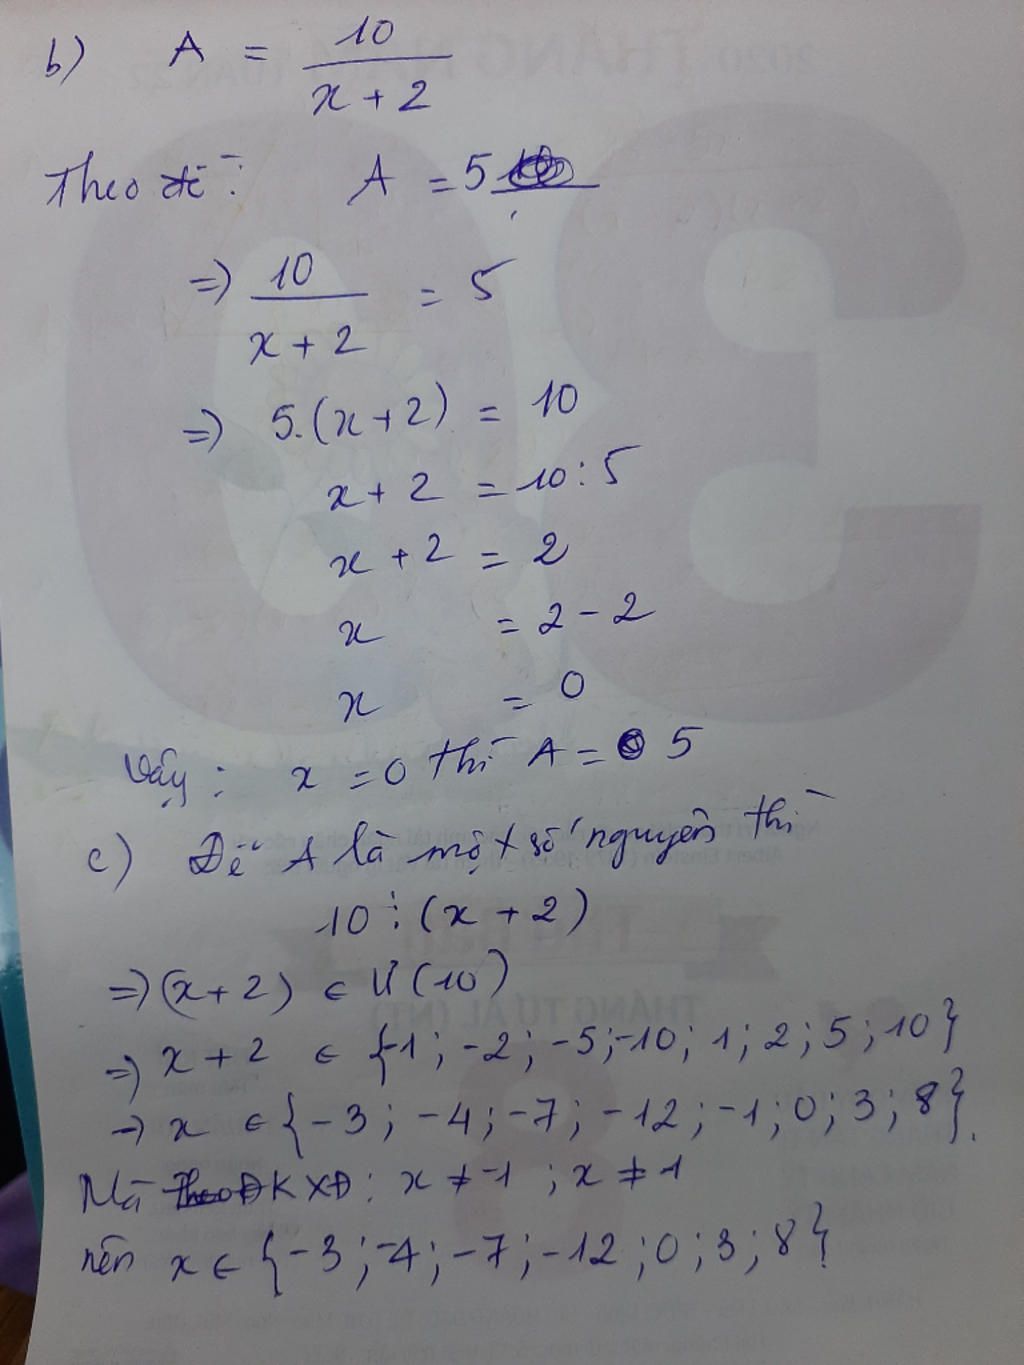 b) A = 10 / (x + 2)
Theo đề: A = 5
=> 10 / (x + 2) = 5
=> 5.(x+2) = 10
x + 2 = 10 : 5
x + 2 = 2
x = 2 - 2
x = 0
Vậy : x = 0 thì A = 5
c) Để A là một số nguyên thì
10 ⋮ (x + 2)
=> (x+2) ∈ Ư(10)
=> x + 2 ∈ {-1; -2; -5; -10; 1; 2; 5; 10}
=> x ∈ {-3; -4; -7; -12; -1; 0; 3; 8}.
Mà ĐKXĐ: x ≠ -1 ; x ≠ 1
nên x ∈ {-3; -4; -7; -12; 0; 3; 8}